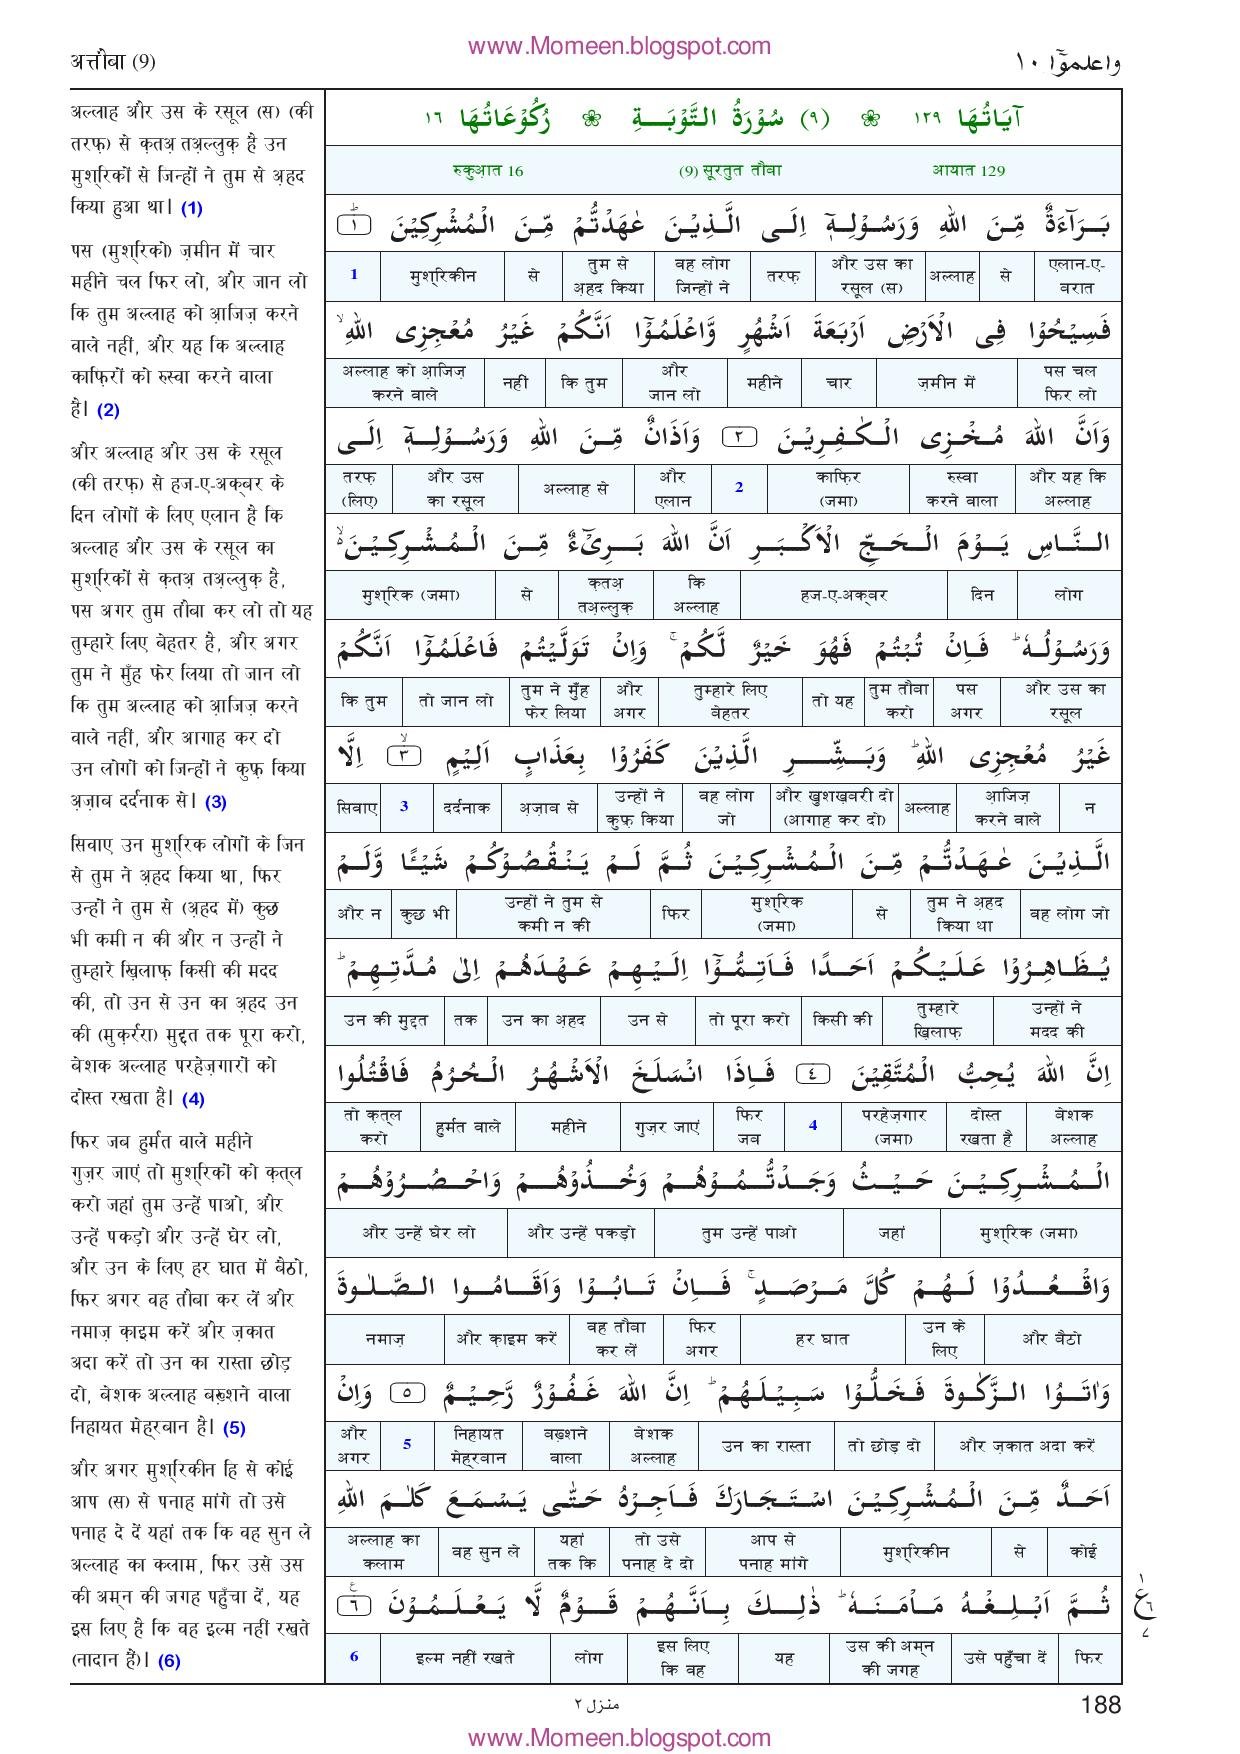 www.Momeen.blogspot.com
अत्तौबा (9)
واعلموٓا ١٠
अल्लाह और उस के रसूल (स) (की
तरफ़) से क़तअ़ तअ़ल्लुक़ है उन
मुश्रिकों से जिन्हों ने तुम से अ़हद
किया हुआ था। (1)
पस (मुश्रिको) ज़मीन में चार
महीने चल फिर लो, और जान लो
कि तुम अल्लाह को आ़जिज़ करने
वाले नहीं, और यह कि अल्लाह
काफ़िरों को रुस्वा करने वाला
है। (2)
और अल्लाह और उस के रसूल
(की तरफ़) से हज-ए-अक्बर के
दिन लोगों के लिए एलान है कि
अल्लाह और उस के रसूल का
मुश्रिकों से क़तअ़ तअ़ल्लुक़ है,
पस अगर तुम तौबा कर लो तो यह
तुम्हारे लिए बेहतर है, और अगर
तुम ने मुँह फेर लिया तो जान लो
कि तुम अल्लाह को आ़जिज़ करने
वाले नहीं, और आगाह कर दो
उन लोगों को जिन्हों ने कुफ़्र किया
अ़ज़ाब दर्दनाक से। (3)
सिवाए उन मुश्रिक लोगों के जिन
से तुम ने अ़हद किया था, फिर
उन्हों ने तुम से (अ़हद में) कुछ
भी कमी न की और न उन्हों ने
तुम्हारे ख़िलाफ़ किसी की मदद
की, तो उन से उन का अ़हद उन
की (मुक़र्ररा) मुद्दत तक पूरा करो,
बेशक अल्लाह परहेज़गारों को
दोस्त रखता है। (4)
फिर जब हुर्मत वाले महीने
गुज़र जाएं तो मुश्रिकों को क़त्ल
करो जहां तुम उन्हें पाओ, और
उन्हें पकड़ो और उन्हें घेर लो,
और उन के लिए हर घात में बैठो,
फिर अगर वह तौबा कर लें और
नमाज़ क़ाइम करें और ज़कात
अदा करें तो उन का रास्ता छोड़
दो, बेशक अल्लाह बख़्शने वाला
निहायत मेह्रबान है। (5)
और अगर मुश्रिकीन हि से कोई
आप (स) से पनाह मांगे तो उसे
पनाह दे दें यहां तक कि वह सुन ले
अल्लाह का कलाम, फिर उसे उस
की अम्न की जगह पहुँचा दें, यह
इस लिए है कि वह इल्म नहीं रखते
(नादान हैं)। (6)
آيَاتُهَا ١٢٩ ❀ (٩) سُوْرَةُ التَّوْبَـــةِ ❀ رُكُوْعَاتُهَا ١٦
रुकुआ़त 16 (9) सूरतुत तौबा आयात 129
بَــرَآءَةٌ مِّنَ اللهِ وَرَسُـوْلِـهٖٓ اِلَــى الَّـذِيْـنَ عٰهَدْتُّمْ مِّـنَ الْـمُشْرِكِيْنَ ۝١
1 मुश्रिकीन से तुम से अ़हद किया वह लोग जिन्हों ने तरफ़ और उस का रसूल (स) अल्लाह से एलान-ए-बरात
فَسِيْحُوْا فِى الْاَرْضِ اَرْبَعَةَ اَشْهُرٍ وَّاعْلَمُوْٓا اَنَّكُمْ غَيْرُ مُعْجِزِى اللهِ ۙ
अल्लाह को आ़जिज़ करने वाले नहीं कि तुम और जान लो महीने चार ज़मीन में पस चल फिर लो
وَاَنَّ اللهَ مُـخْـزِى الْـكٰـفِـرِيْـنَ ۝٢ وَاَذَانٌ مِّـنَ اللهِ وَرَسُــوْلِــهٖٓ اِلَــى
तरफ़ (लिए) और उस का रसूल अल्लाह से और एलान 2 काफ़िर (जमा) रुस्वा करने वाला और यह कि अल्लाह
الـنَّـاسِ يَــوْمَ الْـحَـجِّ الْاَكْـبَـرِ اَنَّ اللهَ بَــرِىْٓءٌ مِّـنَ الْـمُـشْـرِكِـيْـنَ ۙ
मुश्रिक (जमा) से क़तअ़ तअ़ल्लुक़ कि अल्लाह हज-ए-अक्बर दिन लोग
وَرَسُـوْلُـهٗ ؕ فَـاِنْ تُـبْتُمْ فَهُوَ خَيْرٌ لَّكُمْ ۚ وَاِنْ تَوَلَّيْتُمْ فَاعْلَمُوْٓا اَنَّكُمْ
कि तुम तो जान लो तुम ने मुँह फेर लिया और अगर तुम्हारे लिए बेहतर तो यह तुम तौबा करो पस अगर और उस का रसूल
غَيْرُ مُعْجِزِى اللهِ ؕ وَبَـشِّــــرِ الَّذِيْنَ كَفَرُوْا بِعَذَابٍ اَلِيْمٍ ۝٣ اِلَّا
सिवाए 3 दर्दनाक अ़ज़ाब से उन्हों ने कुफ़्र किया वह लोग जो और खुशख़बरी दो (आगाह कर दो) अल्लाह आ़जिज़ करने वाले न
الَّـذِيْنَ عٰـهَـدْتُّـمْ مِّـنَ الْـمُشْـرِكِـيْـنَ ثُـمَّ لَـمْ يَـنْـقُصُوْكُمْ شَيْـئًا وَّلَـمْ
और न कुछ भी उन्हों ने तुम से कमी न की फिर मुश्रिक (जमा) से तुम ने अ़हद किया था वह लोग जो
يُـظَـاهِـرُوْا عَـلَـيْـكُمْ اَحَـدًا فَـاَتِـمُّـوْٓا اِلَـيْـهِـمْ عَـهْـدَهُـمْ اِلٰى مُـدَّتِـهِـمْ ؕ
उन की मुद्दत तक उन का अ़हद उन से तो पूरा करो किसी की तुम्हारे ख़िलाफ़ उन्हों ने मदद की
اِنَّ اللهَ يُـحِبُّ الْـمُتَّقِيْنَ ۝٤ فَـاِذَا انْسَلَخَ الْاَشْـهُـرُ الْـحُـرُمُ فَاقْتُلُوا
तो क़त्ल करो हुर्मत वाले महीने गुज़र जाएं फिर जब 4 परहेज़गार (जमा) दोस्त रखता है बेशक अल्लाह
الْـمُـشْـرِكِـيْـنَ حَـيْـثُ وَجَـدْتُّـمُـوْهُـمْ وَخُـذُوْهُـمْ وَاحْـصُـرُوْهُـمْ
और उन्हें घेर लो और उन्हें पकड़ो तुम उन्हें पाओ जहां मुश्रिक (जमा)
وَاقْـعُـدُوْا لَـهُـمْ كُلَّ مَـرْصَـدٍ ۚ فَـاِنْ تَـابُـوْا وَاَقَـامُـوا الـصَّـلٰوةَ
नमाज़ और क़ाइम करें वह तौबा कर लें फिर अगर हर घात उन के लिए और बैठो
وَاٰتَـوُا الـزَّكٰوةَ فَـخَـلُّـوْا سَـبِـيْـلَـهُـمْ ؕ اِنَّ اللهَ غَـفُـوْرٌ رَّحِـيْـمٌ ۝٥ وَاِنْ
और अगर 5 निहायत मेह्रबान बख़्शने वाला बेशक अल्लाह उन का रास्ता तो छोड़ दो और ज़कात अदा करें
اَحَـدٌ مِّـنَ الْـمُشْـرِكِـيْـنَ اسْـتَـجَـارَكَ فَـاَجِـرْهُ حَـتّٰى يَـسْـمَـعَ كَلٰـمَ اللهِ
अल्लाह का कलाम वह सुन ले यहां तक कि तो उसे पनाह दे दो आप से पनाह मांगे मुश्रिकीन से कोई
ثُـمَّ اَبْـلِـغْـهُ مَـاْمَـنَـهٗ ؕ ذٰلِـكَ بِـاَنَّـهُـمْ قَـوْمٌ لَّا يَـعْـلَـمُـوْنَ ۝٦
6 इल्म नहीं रखते लोग इस लिए कि वह यह उस की अम्न की जगह उसे पहुँचा दें फिर
١
ع ٦
٧
منزل ٢
188
www.Momeen.blogspot.com